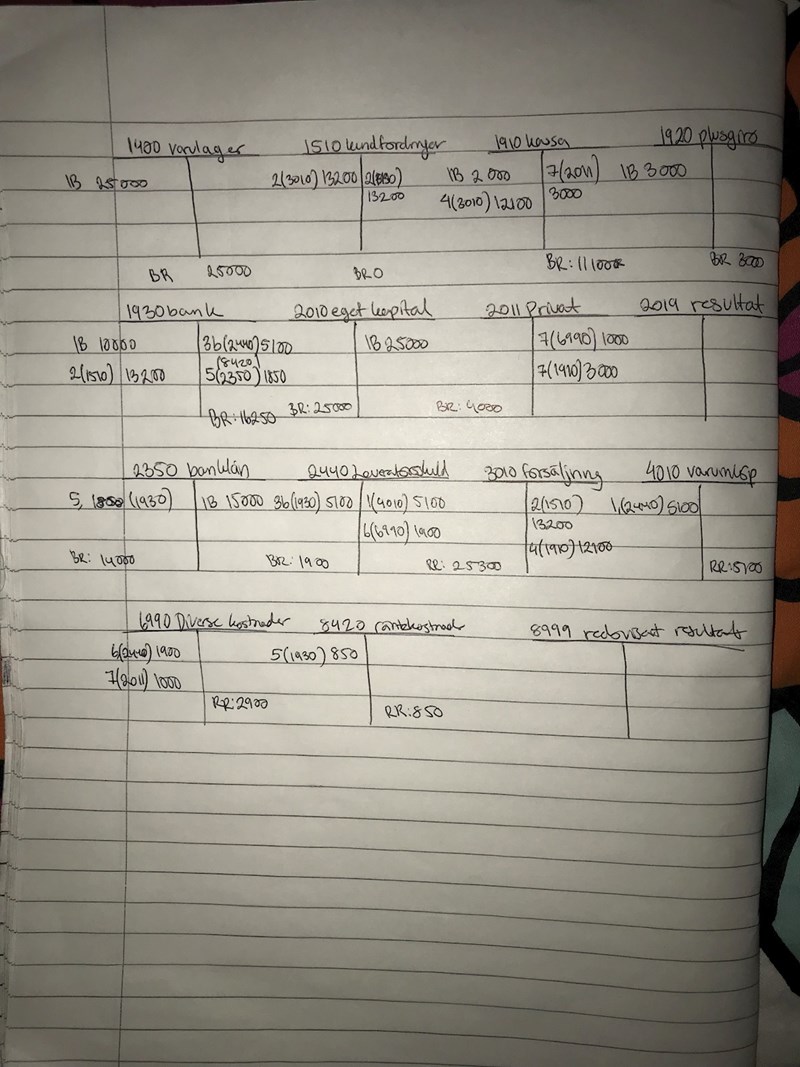 1400 varulager 1510 kundfordringar 1910 kassa 1920 plusgiro
IB 25000 2(3010) 13200 2(1930) IB 2000 7(2011) IB 3000
13200 4(3010) 12100 3000
BR 25000 BR 0 BR: 11100 BR 3000
1930 bank 2010 eget kapital 2011 Privat 2019 resultat
IB 10000 3b(2440) 5100 IB 25000 7(6990) 1000
(8420)
2(1510) 13200 5(2350) 1850 7(1910) 3000
BR: 16250 BR: 25000 BR: 4000
2350 banklån 2440 Leverantörsskuld 3010 försäljning 4010 varuinköp
5, 1850 (1930) IB 15000 3b(1930) 5100 1(4010) 5100 2(1510) 1,(2440) 5100
6(6990) 1900 13200
4(1910) 12100
BR: 14000 BR: 1900 RR: 25300 RR: 5100
6990 Diverse kostnader 8420 räntekostnader 8999 redovisat resultat
6(2440) 1900 5(1930) 850
7(2011) 1000
RR: 2900 RR: 850